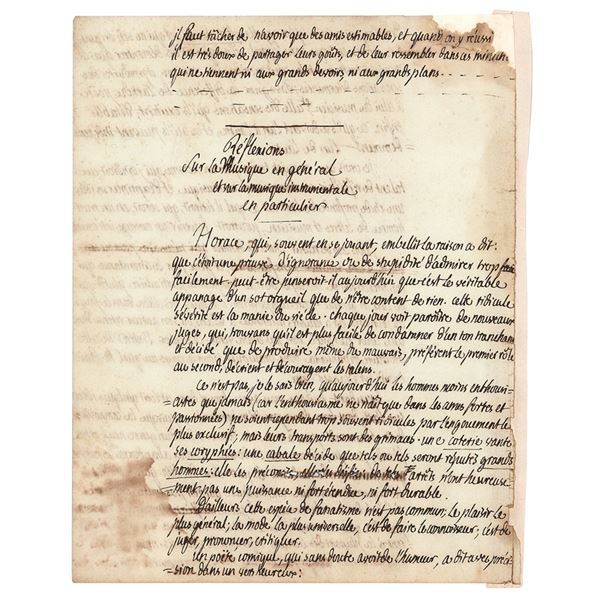 il faut tâcher de n'avoir que des amis estimables, et quand on y réussi
il est très doux de partager leurs goûts, et de leur ressembler dans ces minuties
qui ne tiennent ni aux grands devoirs ni aux grands plans - - - -
Réflexions
Sur la Musique en général
et sur la musique instrumentale
en particulier
Horace, qui, souvent en se jouant, embellit la raison a dit:
que c'étoit une preuve d'ignorance ou de stupidité d'admirer trop
facilement. peut-être penseroit il aujourd'hui que c'est le véritable
apanage d'un sot orgueil que de n'être content de rien. cette ridicule
sévérité est la manie du siècle. chaque jour voit paroître de nouveaux
juges, qui, trouvans qu'il est plus facile de condamner d'un ton tranchant
et décidé que de produire même du mauvais, préfèrent le premier rôle
au second, décrient et découragent les talens.
Ce n'est pas, je le sais bien, qu'aujourd'hui les hommes moins enthousi-
=astes que jamais (car l'enthousiasme ne naît que dans les ames fortes et
passionnées) ne soient cependant trop souvent ridicules par l'engouement le
plus exclusif; mais leurs transports sont des grimaces. une coterie vante
ses coryphées: une cabale décide que tels ou tels seront réputés grands
hommes: elle les préconise, elle
n'ont heureuse
=ment pas une puissance ni fort étendue, ni fort durable.
D'ailleurs cette espèce de fanatisme n'est pas commun; le plaisir le
plus général, la mode la plus universelle, c'est de faire le connoisseur; c'est de
juger, prononcer, critiquer.
Un poëte comique, qui sans doute avoit de l'humeur, a dit avec préci
=sion dans un vers heureux: